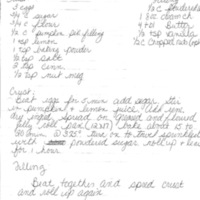 3 eggs
3/4 c sugar
3/4 c flour
1/2 c pumpkin pie filling
1 tsp lemon
1 tsp baking powder
1/2 tsp salt
2 tsp cinn
1/2 tsp nutmeg
1/2 c powdered
1 8oz
4 tbl Butter
1/2 tsp vanilla
1/2 c Chopped nuts
Crust:
Beat eggs for 5 min add sugar, stir
in pumpkin & lemon juice. Add
dry ingred. spread on greased and floured
jelly roll pan. Bake
@ 325°. Turn on to towel sprinkled
with powdered sugar roll up &
for 1 hour
Filling
Beat together and spread crust
and roll up again